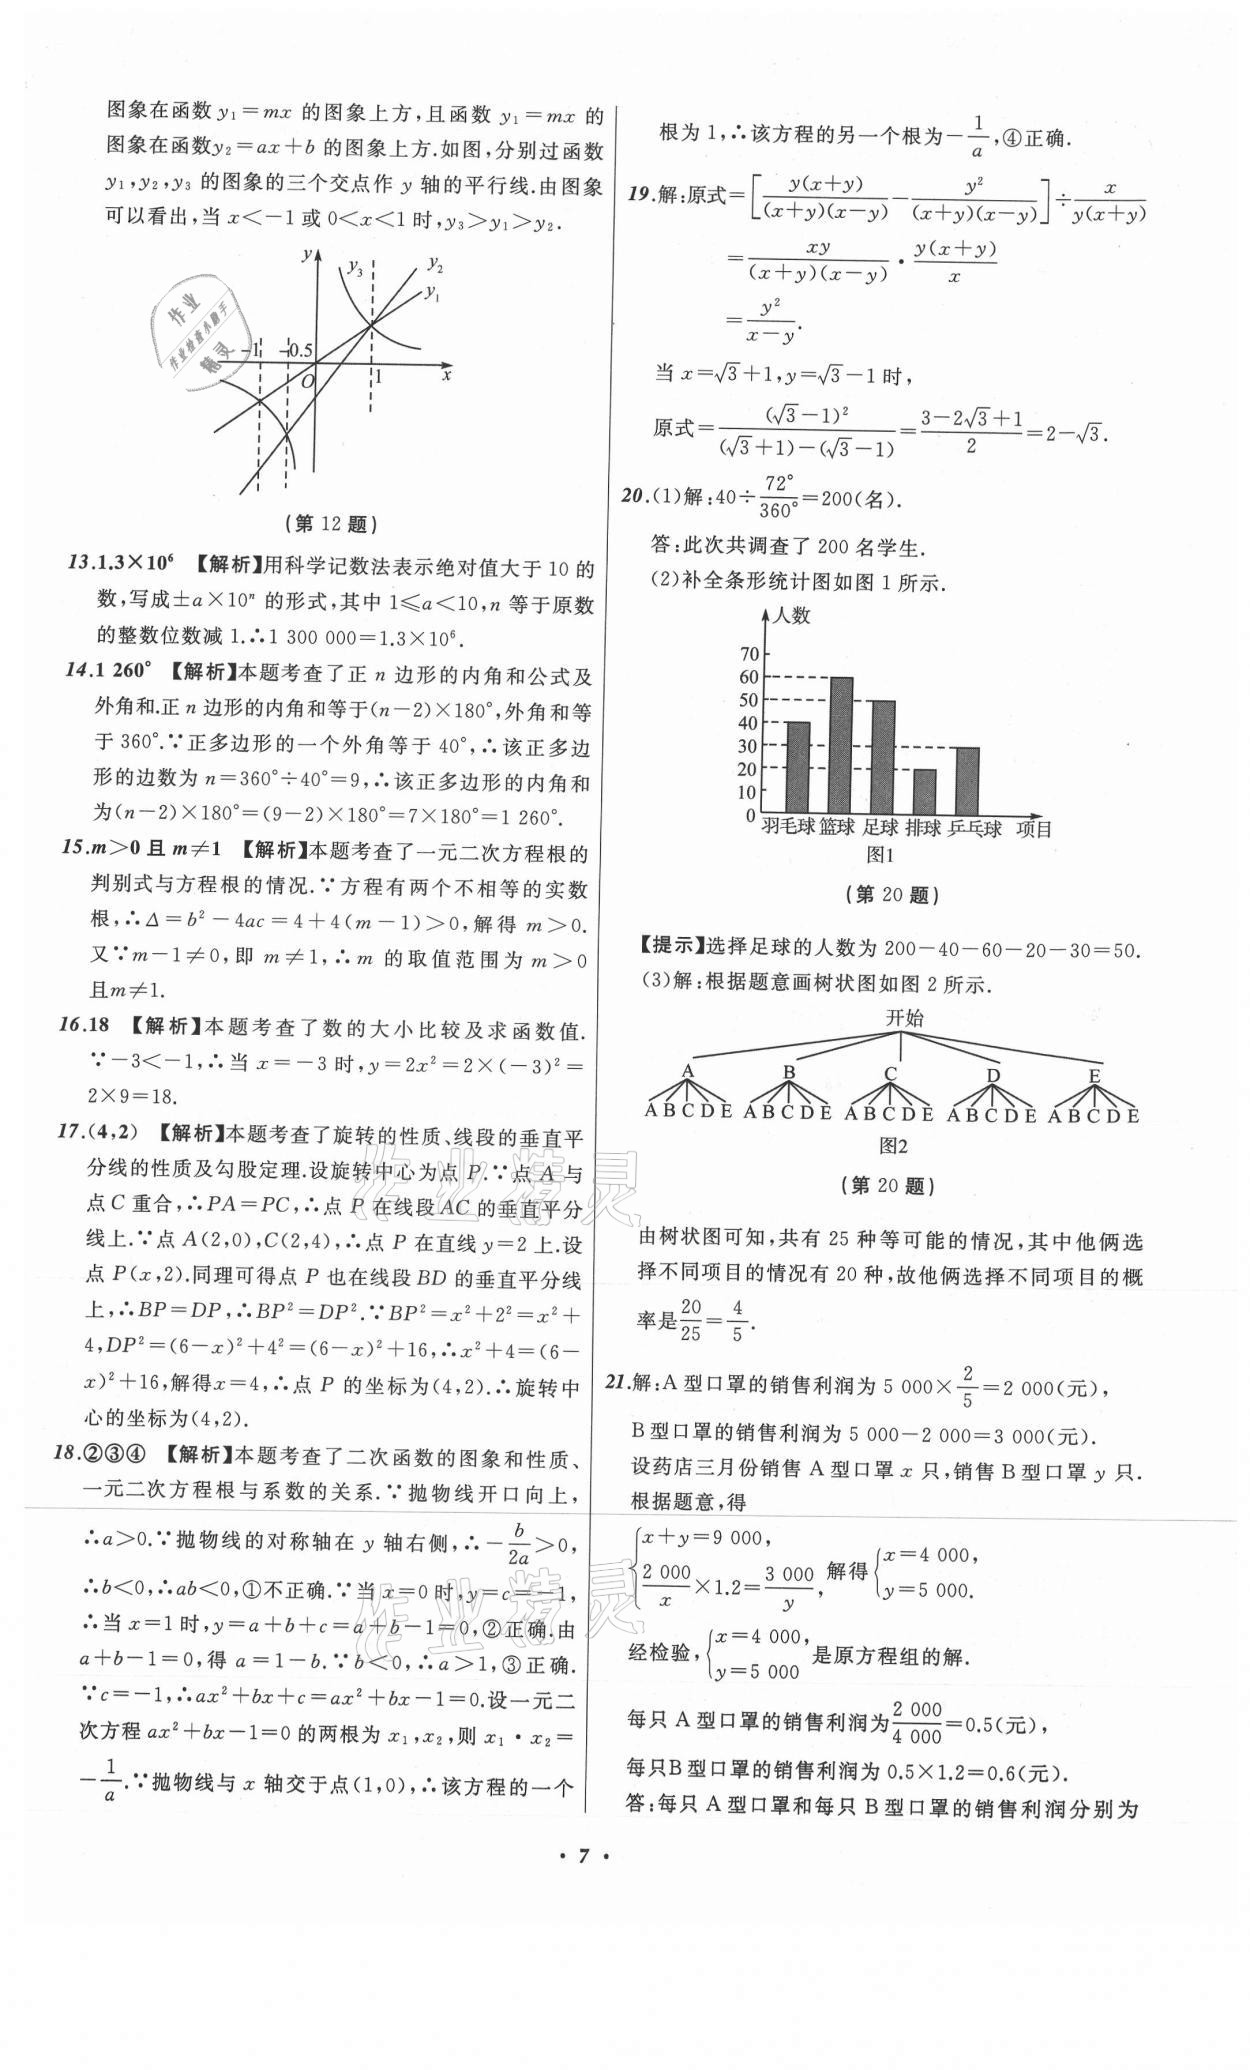 图象在函数 y₁=mx 的图象上方,且函数 y₁=mx 的
图象在函数y₂=ax+b 的图象上方.如图,分别过函数
y₁,y₂,y₃ 的图象的三个交点作 y 轴的平行线.由图象
可以看出,当 x<-1 或 0<x<1 时,y₃>y₁>y₂.
y y₃ y₂
y₁
-1 -0.5
O 1 x
作业
作业检查小助手
精灵
(第 12 题)
13.1.3×10⁶ 【解析】用科学记数法表示绝对值大于 10 的
数,写成±a×10ⁿ 的形式,其中 1≤a<10,n 等于原数
的整数位数减 1.∴1 300 000=1.3×10⁶.
14.1 260° 【解析】本题考查了正 n 边形的内角和公式及
外角和.正 n 边形的内角和等于(n-2)×180°,外角和等
于 360°.∵正多边形的一个外角等于 40°,∴该正多边
形的边数为 n=360°÷40°=9,∴该正多边形的内角和
为(n-2)×180°=(9-2)×180°=7×180°=1 260°.
15.m>0 且 m≠1 【解析】本题考查了一元二次方程根的
判别式与方程根的情况.∵方程有两个不相等的实数
根,∴Δ=b²-4ac=4+4(m-1)>0,解得 m>0.
又∵m-1≠0,即 m≠1,∴m 的取值范围为 m>0
且m≠1.
16.18 【解析】本题考查了数的大小比较及求函数值.
∵-3<-1,∴当 x=-3 时,y=2x²=2×(-3)²=
2×9=18.
17.(4,2) 【解析】本题考查了旋转的性质、线段的垂直平
分线的性质及勾股定理.设旋转中心为点 P.∵点 A 与
点 C 重合,∴PA=PC,∴点 P 在线段AC 的垂直平分
线上.∵点 A(2,0),C(2,4),∴点 P 在直线 y=2 上.设
点 P(x,2).同理可得点 P 也在线段 BD 的垂直平分线
上,∴BP=DP,∴BP²=DP².∵BP²=x²+2²=x²+
4,DP²=(6-x)²+4²=(6-x)²+16,∴x²+4=(6-
x)²+16,解得x=4,∴点 P 的坐标为(4,2).∴旋转中
心的坐标为(4,2).
18.②③④ 【解析】本题考查了二次函数的图象和性质、
一元二次方程根与系数的关系.∵抛物线开口向上,
∴a>0.∵抛物线的对称轴在 y 轴右侧,∴-b/2a>0,
∴b<0,∴ab<0,①不正确.∵当 x=0 时,y=c=-1,
∴当 x=1 时,y=a+b+c=a+b-1=0,②正确.由
a+b-1=0,得 a=1-b.∵b<0,∴a>1,③正确.
∵c=-1,∴ax²+bx+c=ax²+bx-1=0.设一元二
次方程 ax²+bx-1=0 的两根为 x₁,x₂,则 x₁·x₂=
-1/a.∵抛物线与 x 轴交于点(1,0),∴该方程的一个
根为 1,∴该方程的另一个根为-1/a,④正确.
19.解:原式=[y(x+y)/(x+y)(x-y)-y²/(x+y)(x-y)]÷x/y(x+y)
=xy/(x+y)(x-y)·y(x+y)/x
=y²/x-y.
当 x=√3+1,y=√3-1 时,
原式=(√3-1)²/(√3+1)-(√3-1)=3-2√3+1/2=2-√3.
20.(1)解:40÷72°/360°=200(名).
答:此次共调查了 200 名学生.
(2)补全条形统计图如图 1 所示.
人数
70
60
50
40
30
20
10
0
羽毛球 篮球 足球 排球 乒乓球 项目
图1
(第 20 题)
【提示】选择足球的人数为 200-40-60-20-30=50.
(3)解:根据题意画树状图如图 2 所示.
开始
A B C D E
A B C D E A B C D E A B C D E A B C D E A B C D E
图2
(第 20 题)
由树状图可知,共有 25 种等可能的情况,其中他俩选
择不同项目的情况有 20 种,故他俩选择不同项目的概
率是20/25=4/5.
21.解:A 型口罩的销售利润为 5 000×2/5=2 000(元),
B 型口罩的销售利润为 5 000-2 000=3 000(元).
设药店三月份销售 A 型口罩 x 只,销售 B 型口罩 y 只.
根据题意,得
{x+y=9 000, 2 000/x×1.2=3 000/y, 解得{x=4 000, y=5 000.
经检验,{x=4 000, y=5 000 是原方程组的解.
每只 A 型口罩的销售利润为2 000/4 000=0.5(元),
每只B 型口罩的销售利润为 0.5×1.2=0.6(元).
答:每只 A 型口罩和每只 B 型口罩的销售利润分别为
作业精灵
作业精灵
· 7 ·